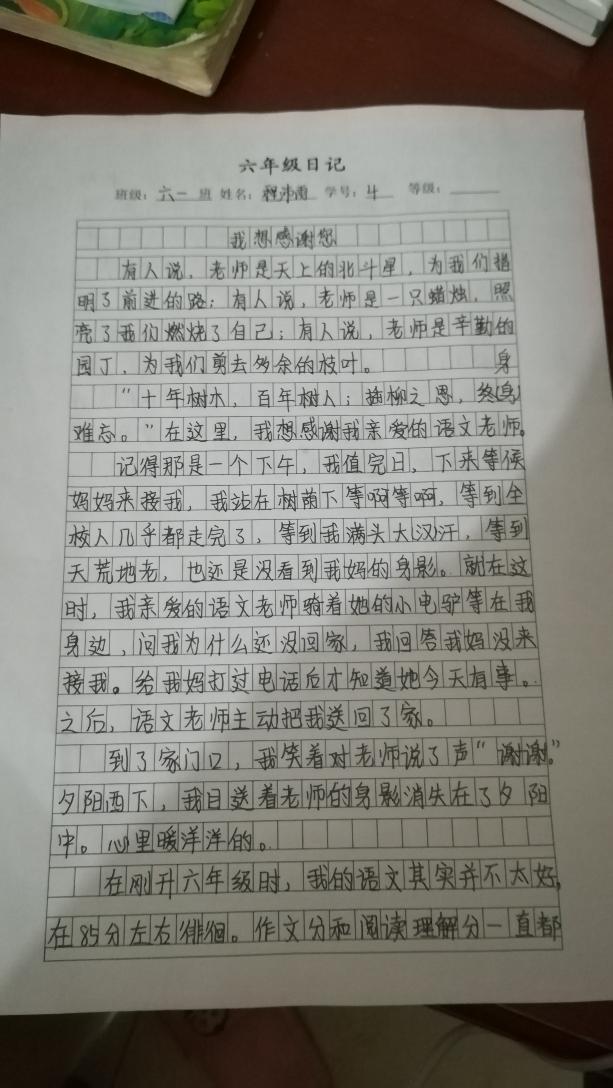 六年级日记
班级：六一 班 姓名： 学号：4 等级：
我想感谢您
有人说，老师是天上的北斗星，为我们指
明了前进的路；有人说，老师是一只蜡烛，照
亮了我们燃烧了自己；有人说，老师是辛勤的
园丁，为我们剪去多余的枝叶。 身
“十年树木，百年树人；插柳之恩，终(身)
难忘。”在这里，我想感谢我亲爱的语文老师。
记得那是一个下午，我值完日，下来等候
妈妈来接我，我站在树荫下等啊等啊，等到全
校人几乎都走完了，等到我满头大汉汗，等到
天荒地老，也还是没看到我妈的身影。就在这
时，我亲爱的语文老师骑着她的小电驴等在我
身边，问我为什么还没回家，我回答我妈没来
接我。给我妈打过电话后才知道她今天有事。
之后，语文老师主动把我送回了家。
到了家门口，我笑着对老师说了声“谢谢。”
夕阳西下，我目送着老师的身影消失在了夕阳
中。心里暖洋洋的。
在刚升六年级时，我的语文其实并不太好，
在85分左右徘徊。作文分和阅读理解分一直都